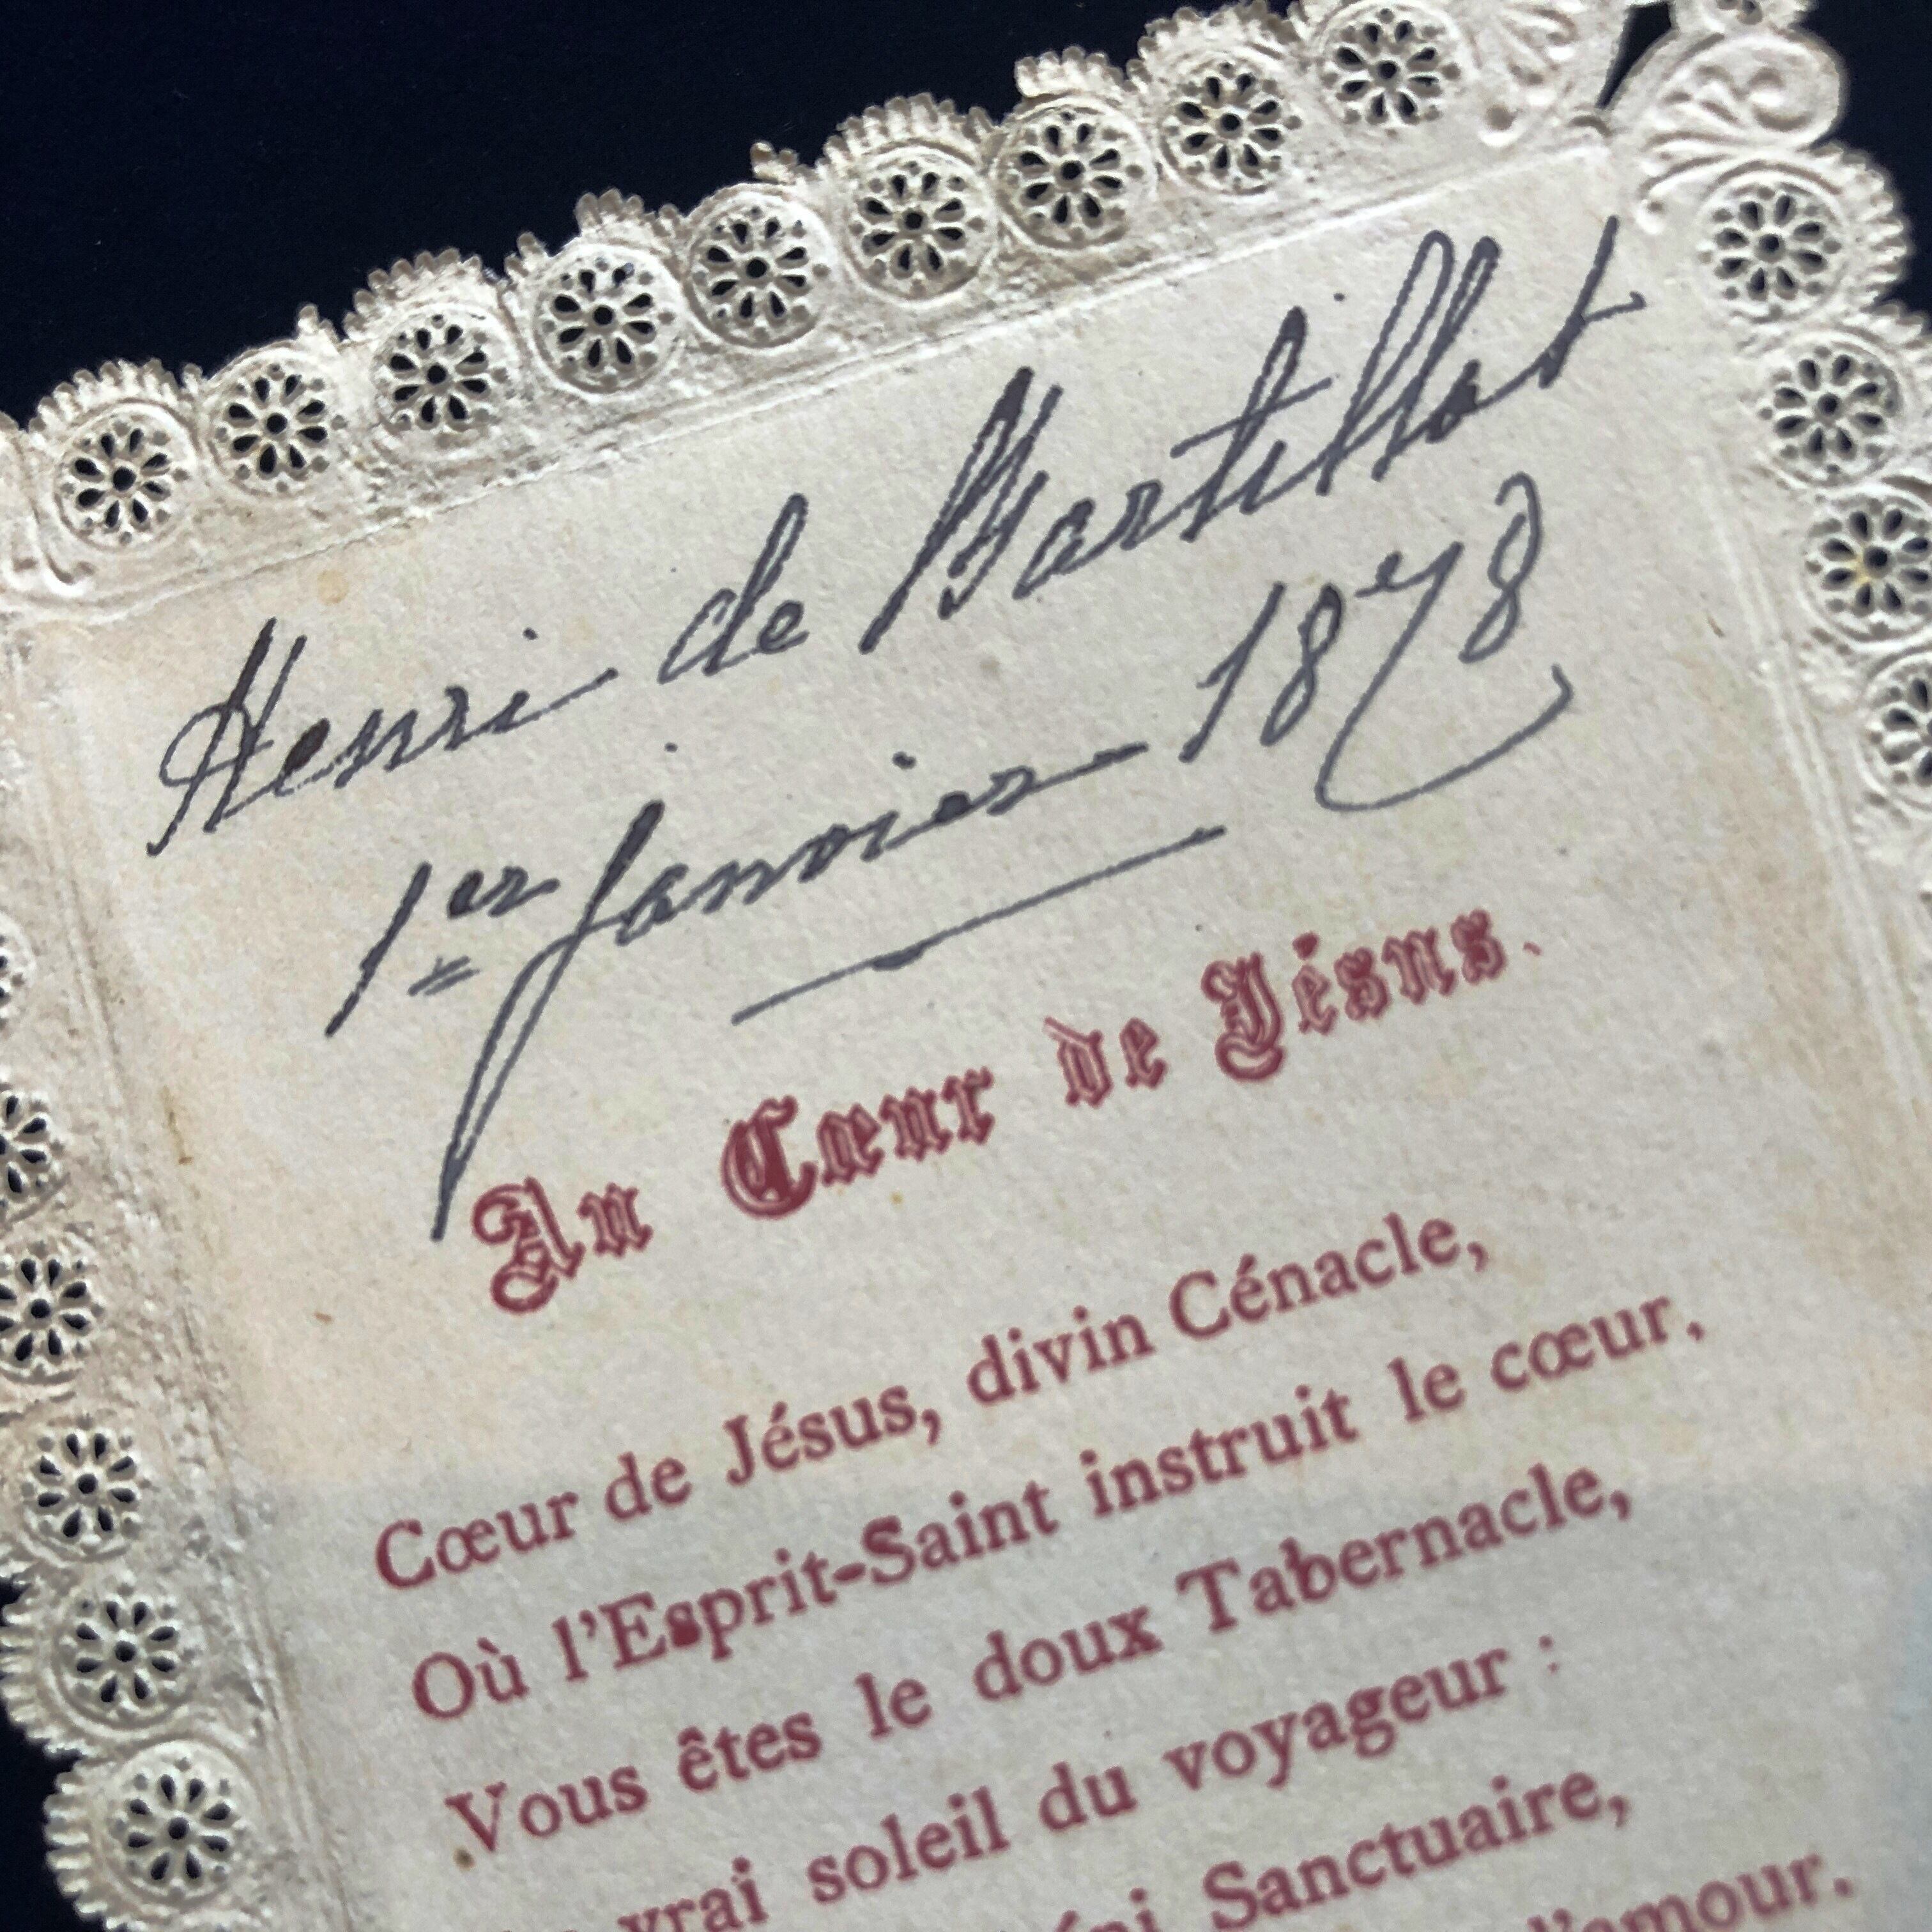 Henri de Martillat
1er Janvier 1878
Au Cœur de Jésus.
Cœur de Jésus, divin Cénacle,
Où l'Esprit-Saint instruit le cœur.
Vous êtes le doux Tabernacle,
vrai soleil du voyageur :
Sanctuaire,
d'amour.